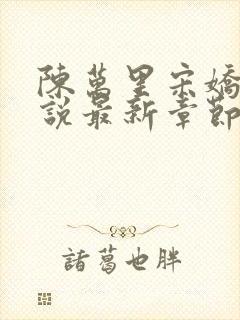 陳萬里宋嬌
說最新章節
諸葛也胖